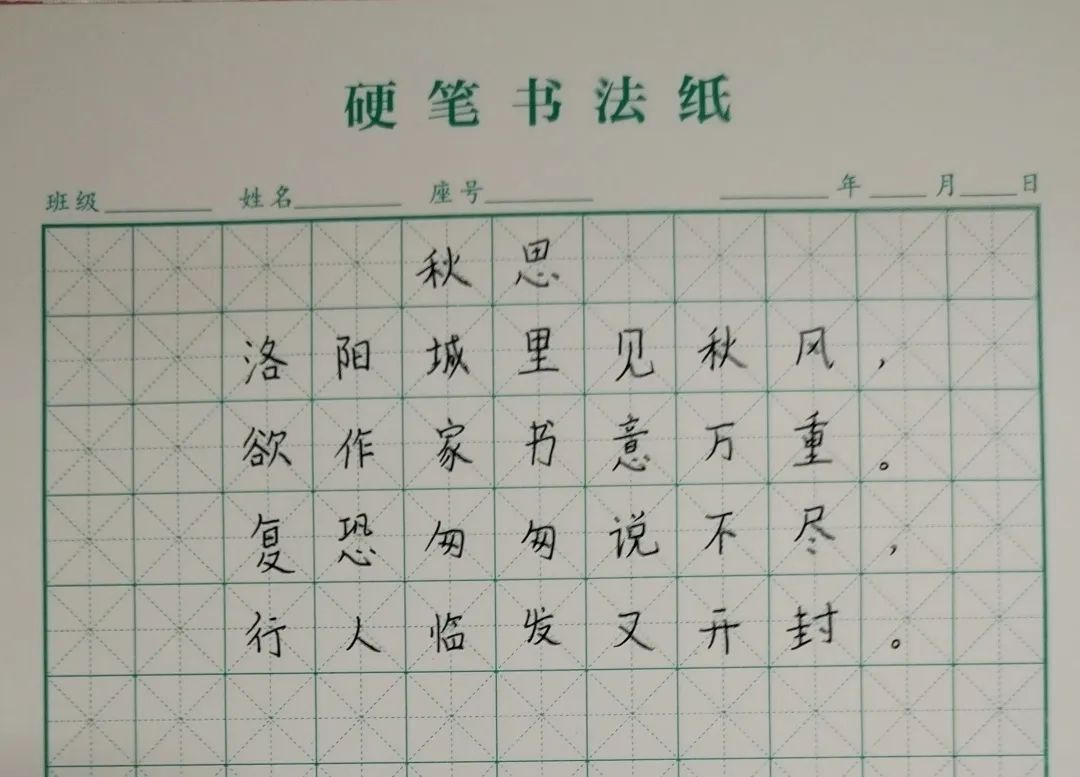 硬笔书法纸
班级 姓名 座号 年 月 日
秋思
洛阳城里见秋风，
欲作家书意万重。
复恐匆匆说不尽，
行人临发又开封。